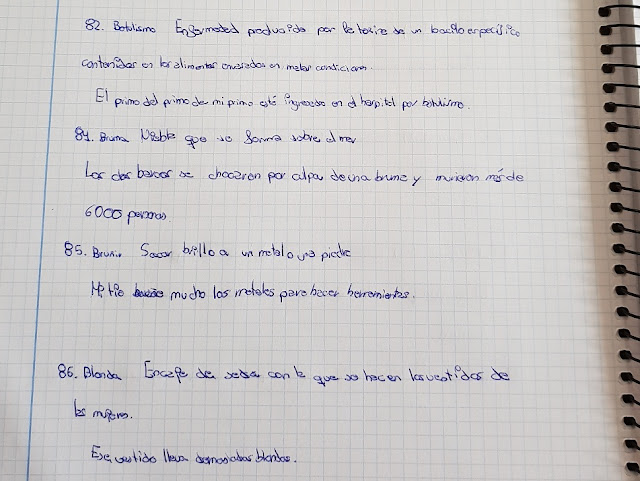 82. Botulismo Enfermedad producida por la toxina de un bacilo específico
contenidas en los alimentos envasados en malas condiciones.
El primo del primo de mi primo está ingresado en el hospital por botulismo.
84. Bruma Niebla que se forma sobre el mar
Los dos barcos se chocaron por culpa de una bruma y murieron más de
6000 personas.
85. Bruñir Sacar brillo a un metal o una piedra
Mi tío mucho los metales para hacer herramientas.
86. Blonda Encaje de seda con la que se hacen los vestidos de
las mujeres.
Ese vestido lleva demasiadas blondas.